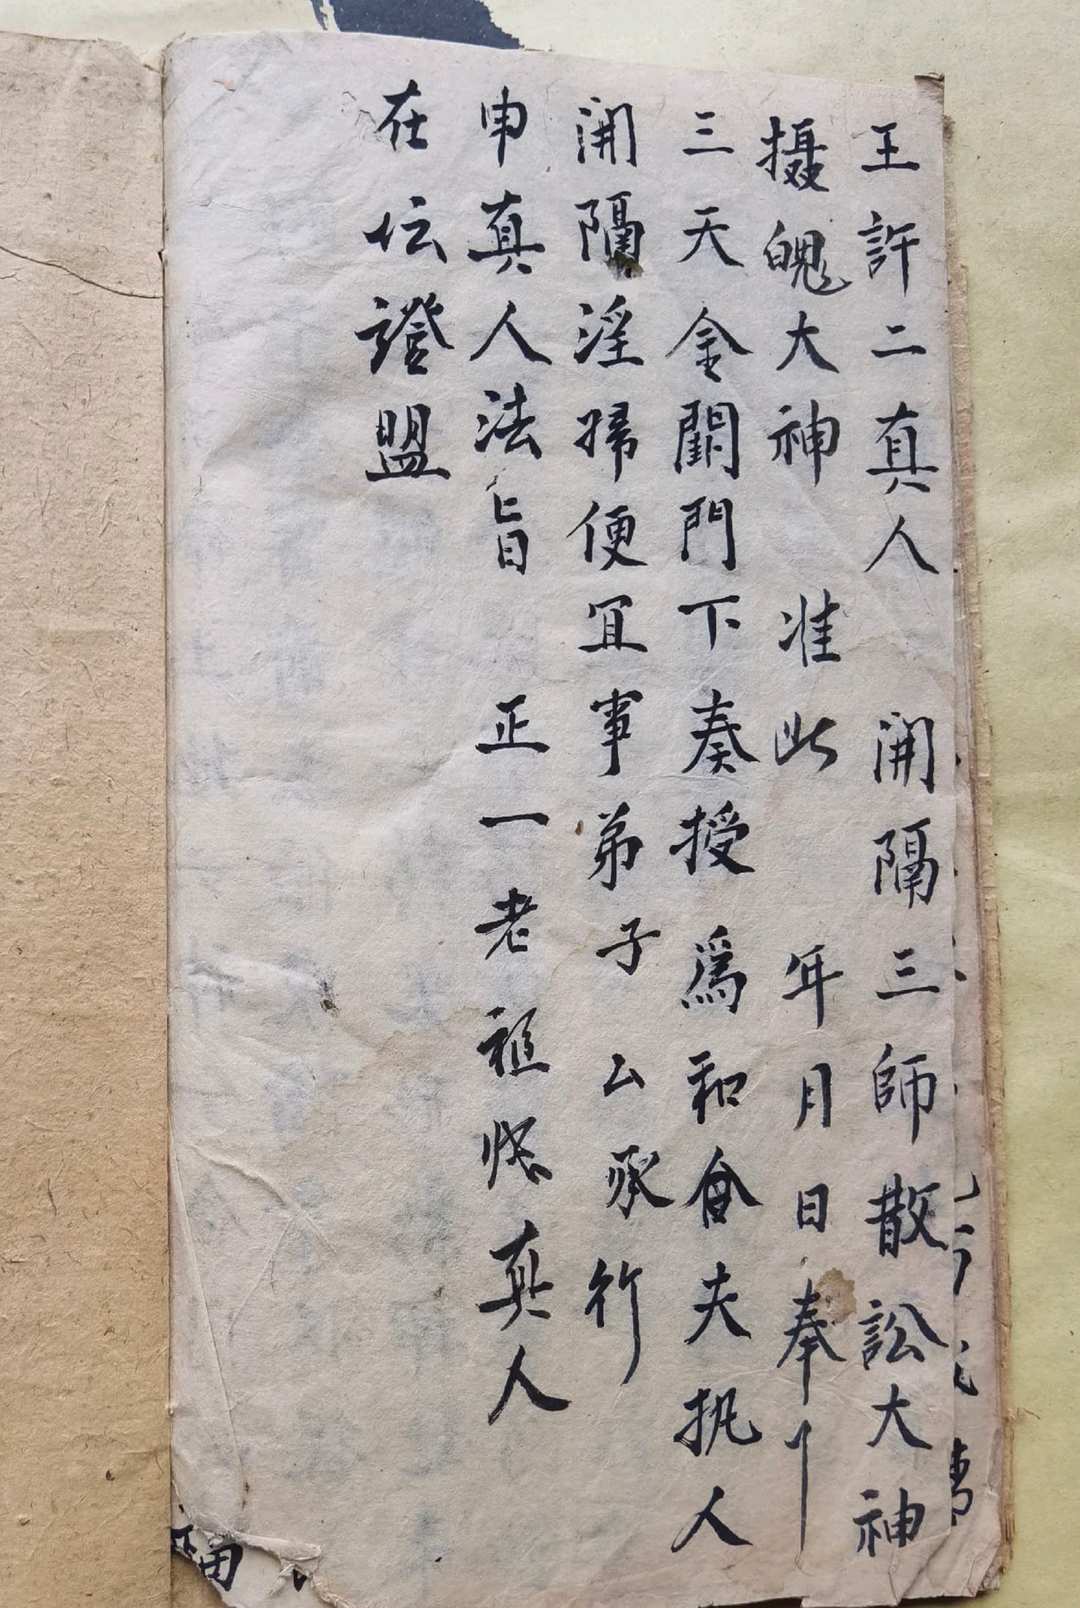 王許二真人　開隔三師散訟大神
摄魄大神　准此　年月日奉行
三天金闕門下奏授爲和合夫执人
開隔淫婦便宜事弟子厶承行
申真人法旨　正一老祖張真人
在伝證盟